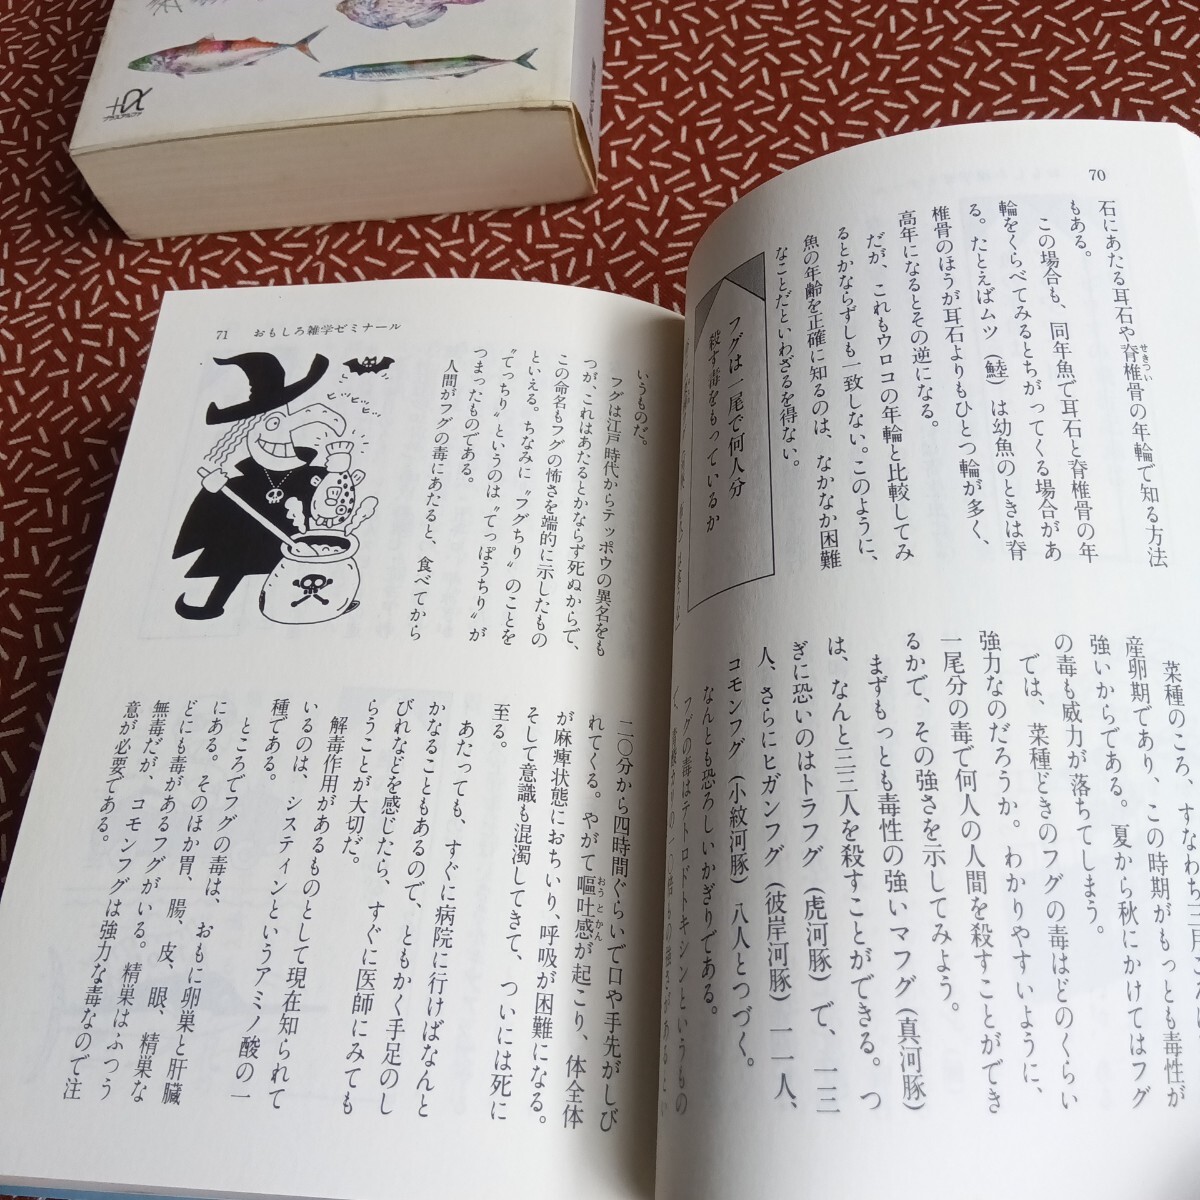 70
石にあたる耳石や脊椎骨の年輪で知る方法
せきつい
もある。
この場合も、同年魚で耳石と脊椎骨の年
輪をくらべてみるとちがってくる場合があ
る。たとえばムツ（鯥）は幼魚のときは脊
椎骨のほうが耳石よりもひとつ輪が多く、
高年になるとその逆になる。
だが、これもウロコの年輪と比較してみ
るとかならずしも一致しない。このように、
魚の年齢を正確に知るのは、なかなか困難
なことだといわざるを得ない。
フグは一尾で何人分
殺す毒をもっているか
産卵期であり、この時期がもっとも毒性が
強いからである。夏から秋にかけてはフグ
の毒も威力が落ちてしまう。
では、菜種どきのフグの毒はどのくらい
強力なのだろうか。わかりやすいように、
一尾分の毒で何人の人間を殺すことができ
るかで、その強さを示してみよう。
まずもっとも毒性の強いマフグ（真河豚）
は、なんと三三人を殺すことができる。つ
ぎに恐いのはトラフグ（虎河豚）で、一三
人、さらにヒガンフグ（彼岸河豚）一一人、
コモンフグ（小紋河豚）八人とつづく。
なんとも恐ろしいかぎりである。
フグの毒はテトロドトキシンというもの
71 おもしろ雑学ゼミナール
いうものだ。
フグは江戸時代からテッポウの異名をも
つが、これはあたるとかならず死ぬからで、
この命名もフグの怖さを端的に示したもの
といえる。ちなみに〝フグちり〟のことを
〝てっちり〟というのは〝てっぽうちり〟が
つまったものである。
人間がフグの毒にあたると、食べてから
ヒッヒッヒッ
二〇分から四時間ぐらいで口や手先がしび
れてくる。やがて嘔吐感が起こり、体全体
おうとかん
が麻痺状態におちいり、呼吸が困難になる。
そして意識も混濁してきて、ついには死に
至る。
あたっても、すぐに病院に行けばなんと
かなることもあるので、ともかく手足のし
びれなどを感じたら、すぐに医師にみても
らうことが大切だ。
解毒作用があるものとして現在知られて
いるのは、システィンというアミノ酸の一
種である。
ところでフグの毒は、おもに卵巣と肝臓
にある。そのほか胃、腸、皮、眼、精巣な
どにも毒があるフグがいる。精巣はふつう
無毒だが、コモンフグは強力な毒なので注
意が必要である。